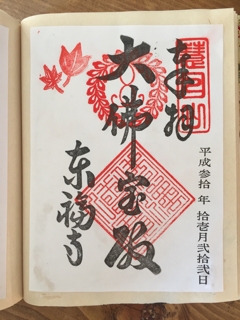 奉拝
平成参拾年 拾壱月弐拾弐日
大佛宝殿
東福寺